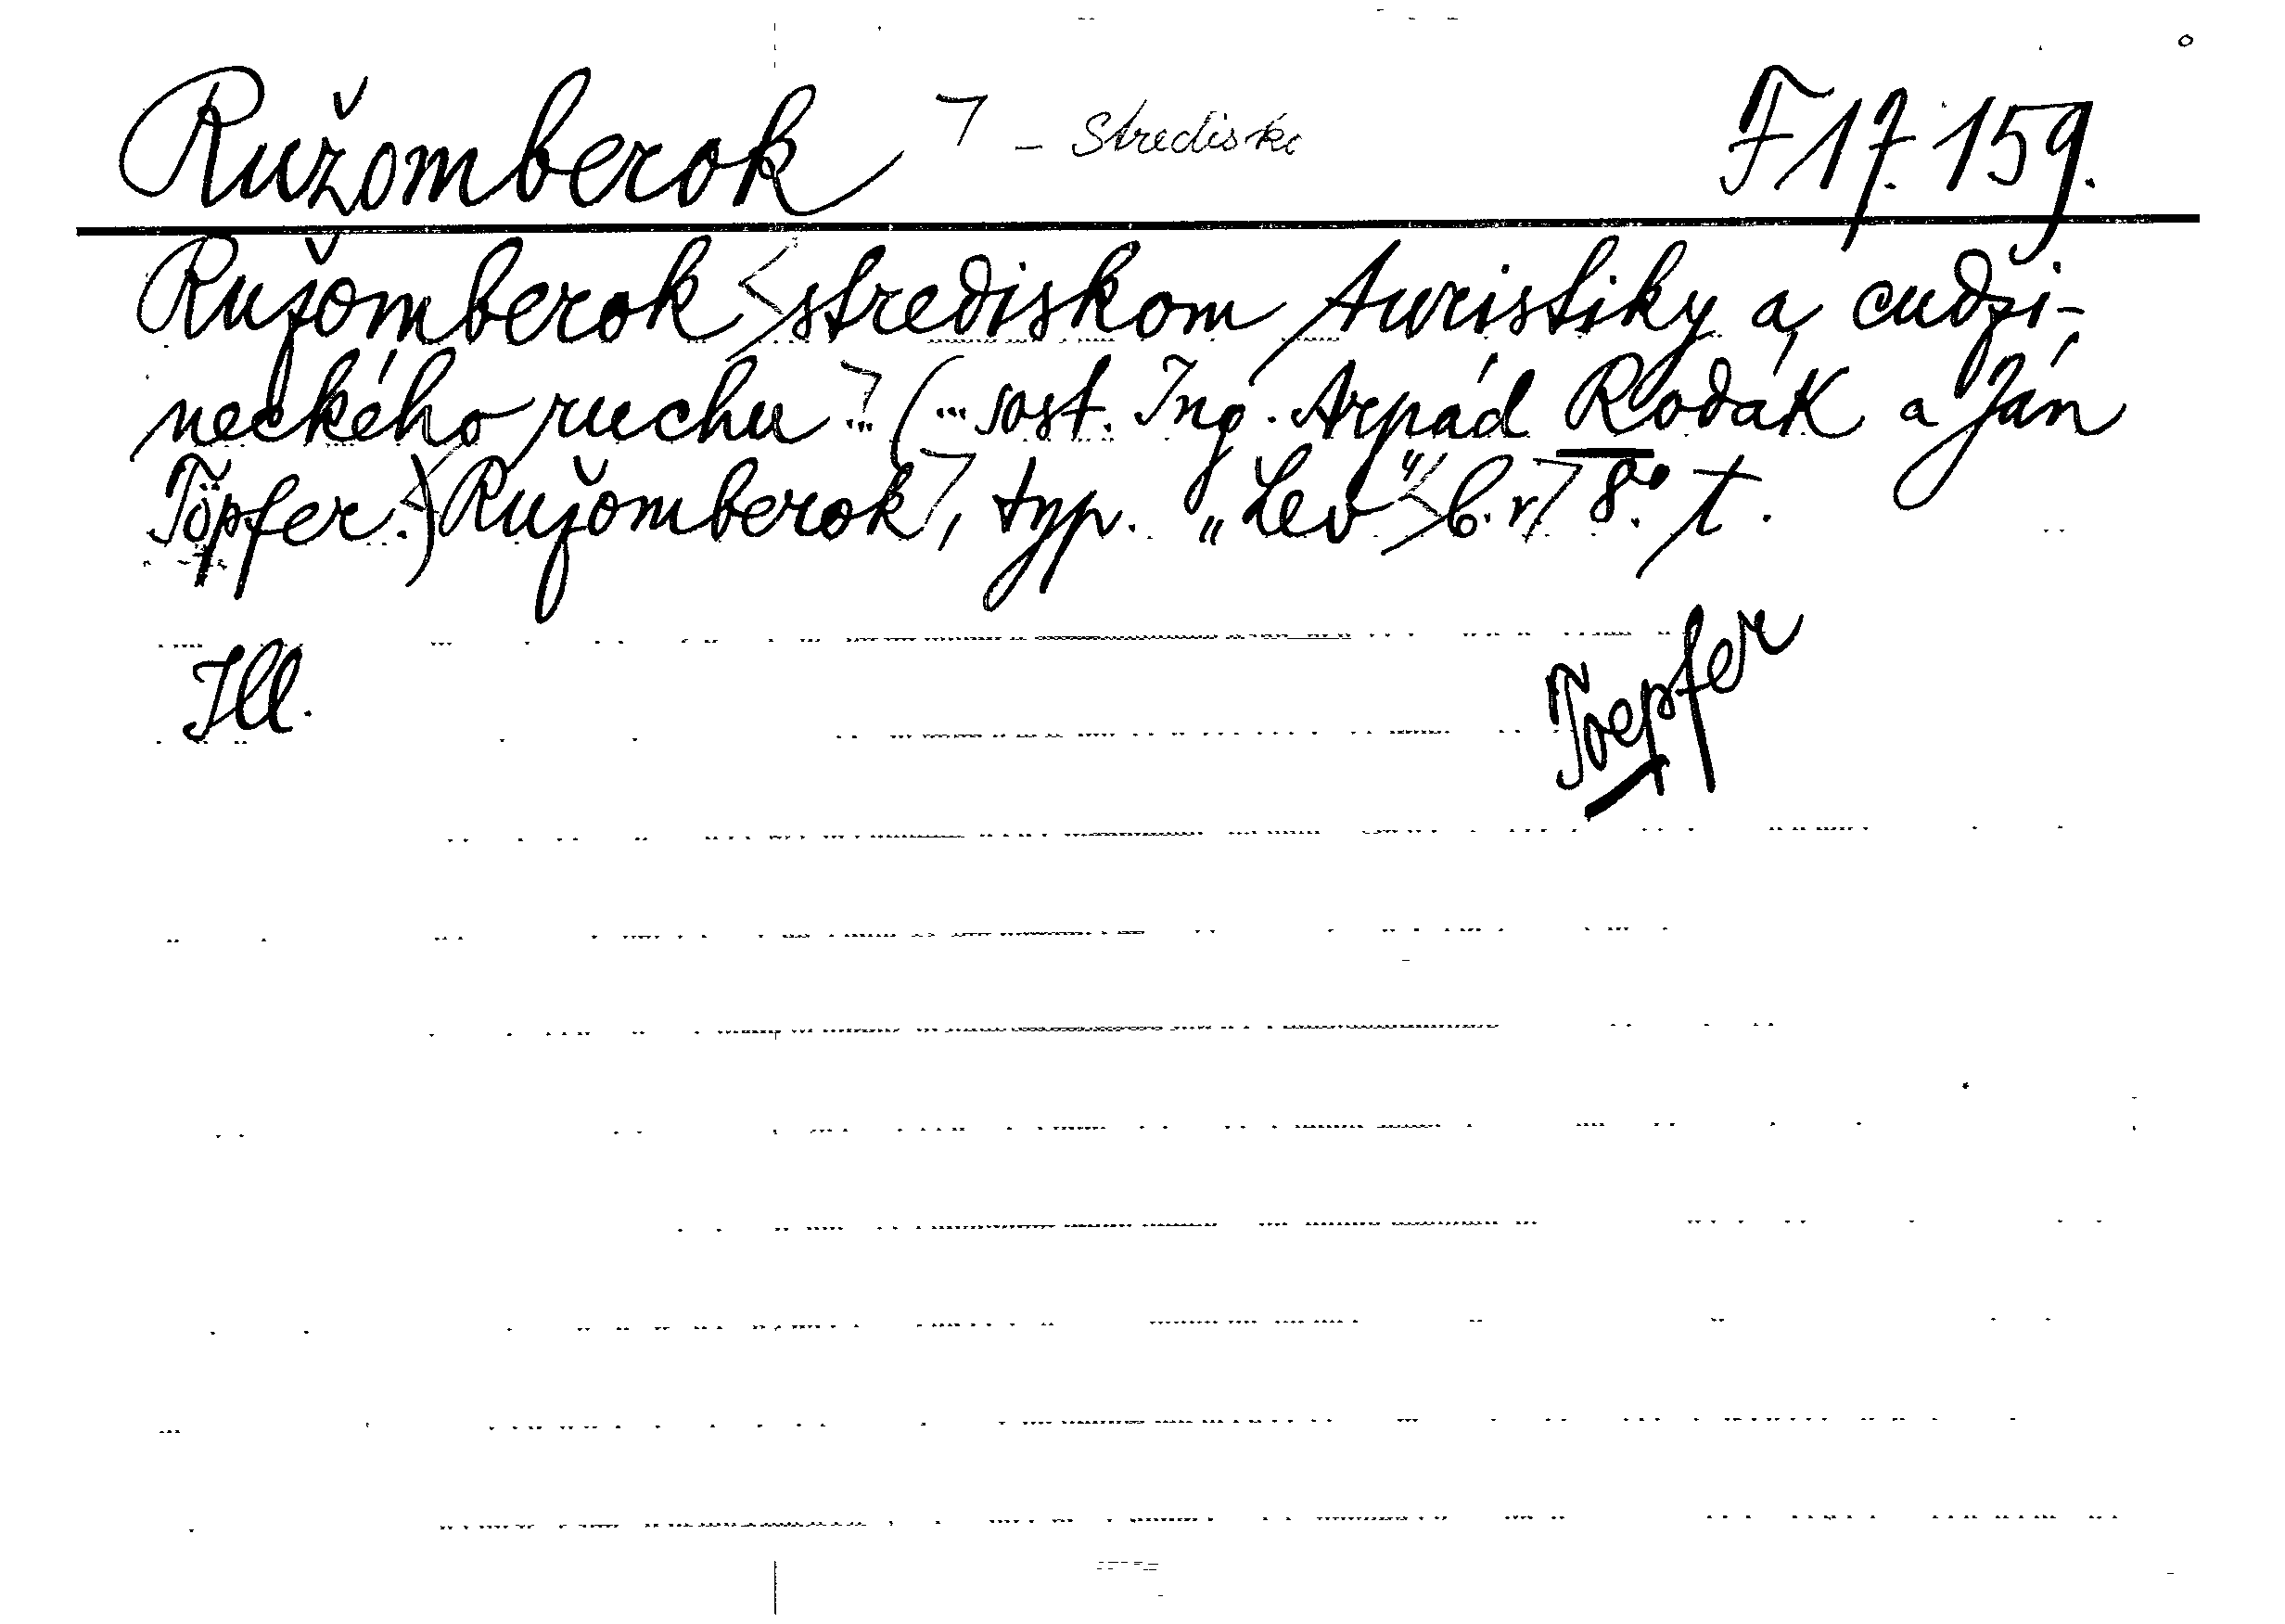 Ružomberok ⌉ - Stredisko F 17.159.
Ružomberok < strediskom turistiky a cudzi-
neckého ruchu ⌉ ... (... sost. Ing. Arpád Rodák a Ján
Töpfer.) < Ružomberok ⌉, typ. „Lev" < b. r. ⌉ 8°. t.
Ill.
Toepfer